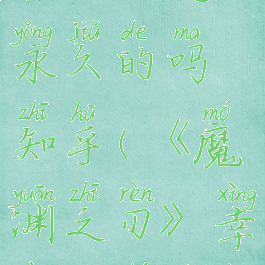 yǒng jiǔ de ma
永久的吗
zhī hū mó
知乎(《魔
yuān zhī rèn xìng
渊之刃》幸